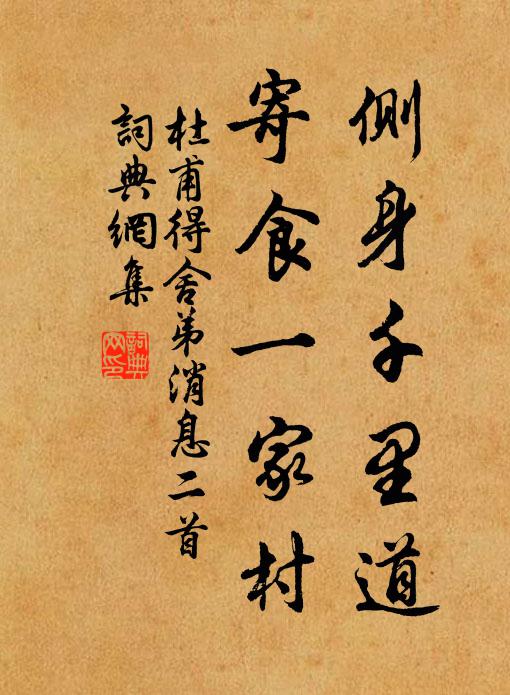 側身千里道
寄食一家村
杜甫得舍弟消息二首
詞典網集
詞典
网印